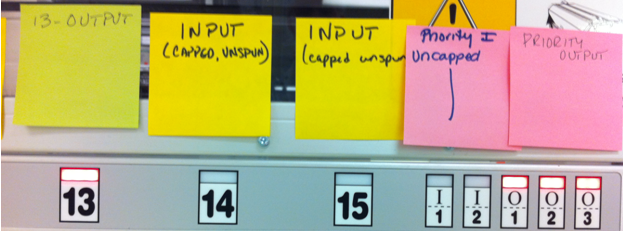 13-OUTPUT
INPUT
(CAPPED, UNSPUN)
INPUT
(capped unspun
Priority I
Uncapped
PRIORITY
OUTPUT
13
14
15
I
1
I
2
O
1
O
2
O
3